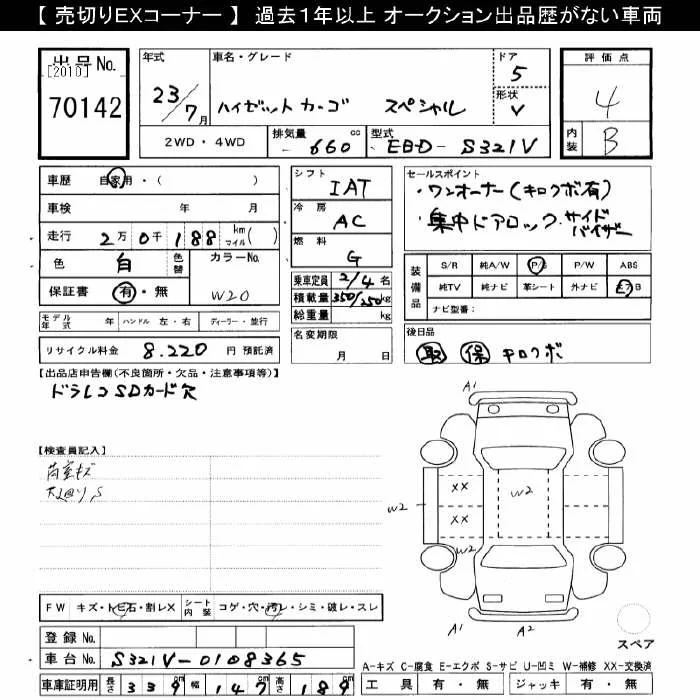 【 売切りEXコーナー 】 過去1年以上 オークション出品歴がない車両
出品 No.
[2010]
70142
年式
23/7月
車名・グレード
ハイゼットカーゴ スペシャル
ドア
5
形状
V
評価点
4
内装
B
2WD・4WD
排気量
660 cc
型式
EBD-S321V
車歴 自家用・( )
車検 年 月
走行 2万0千188 km マイル( )
色 白 色替
カラーNo.
W20
保証書 有・無
モデル年式 年 ハンドル 左・右 ディーラー・並行
リサイクル料金 8.220 円 預託済
シフト
IAT
冷房
AC
燃料
G
乗車定員 2/4 名
積載量 350/250 kg
総重量 kg
名変期限
月 日
セールスポイント
・ワンオーナー(キロクボ有)
・集中ドアロック・サイドバイザー
装備品
S/R 純A/W P/S P/W ABS
純TV 純ナビ 革シート 外ナビ エアB
ナビ型番:
後日品
取 保 キロクボ
【出品店申告欄(不良箇所・欠品・注意事項等)】
ドラレコSDカード欠
【検査員記入】
荷室キズ
下廻りS
A1
W2
XX
W2
XX
W2
W2
A1
A2
スペア
FW キズ・トビ石・割レX
シート内装 コゲ・穴・汚レ・シミ・破レ・スレ
登録 No.
車台 No. S321V-0108365
車庫証明用 長さ 339 cm 幅 147 cm 高さ 189 cm
A-キズ C-腐食 E-エクボ S-サビ U-凹ミ W-補修 XX-交換済
工具 有・無 ジャッキ 有・無